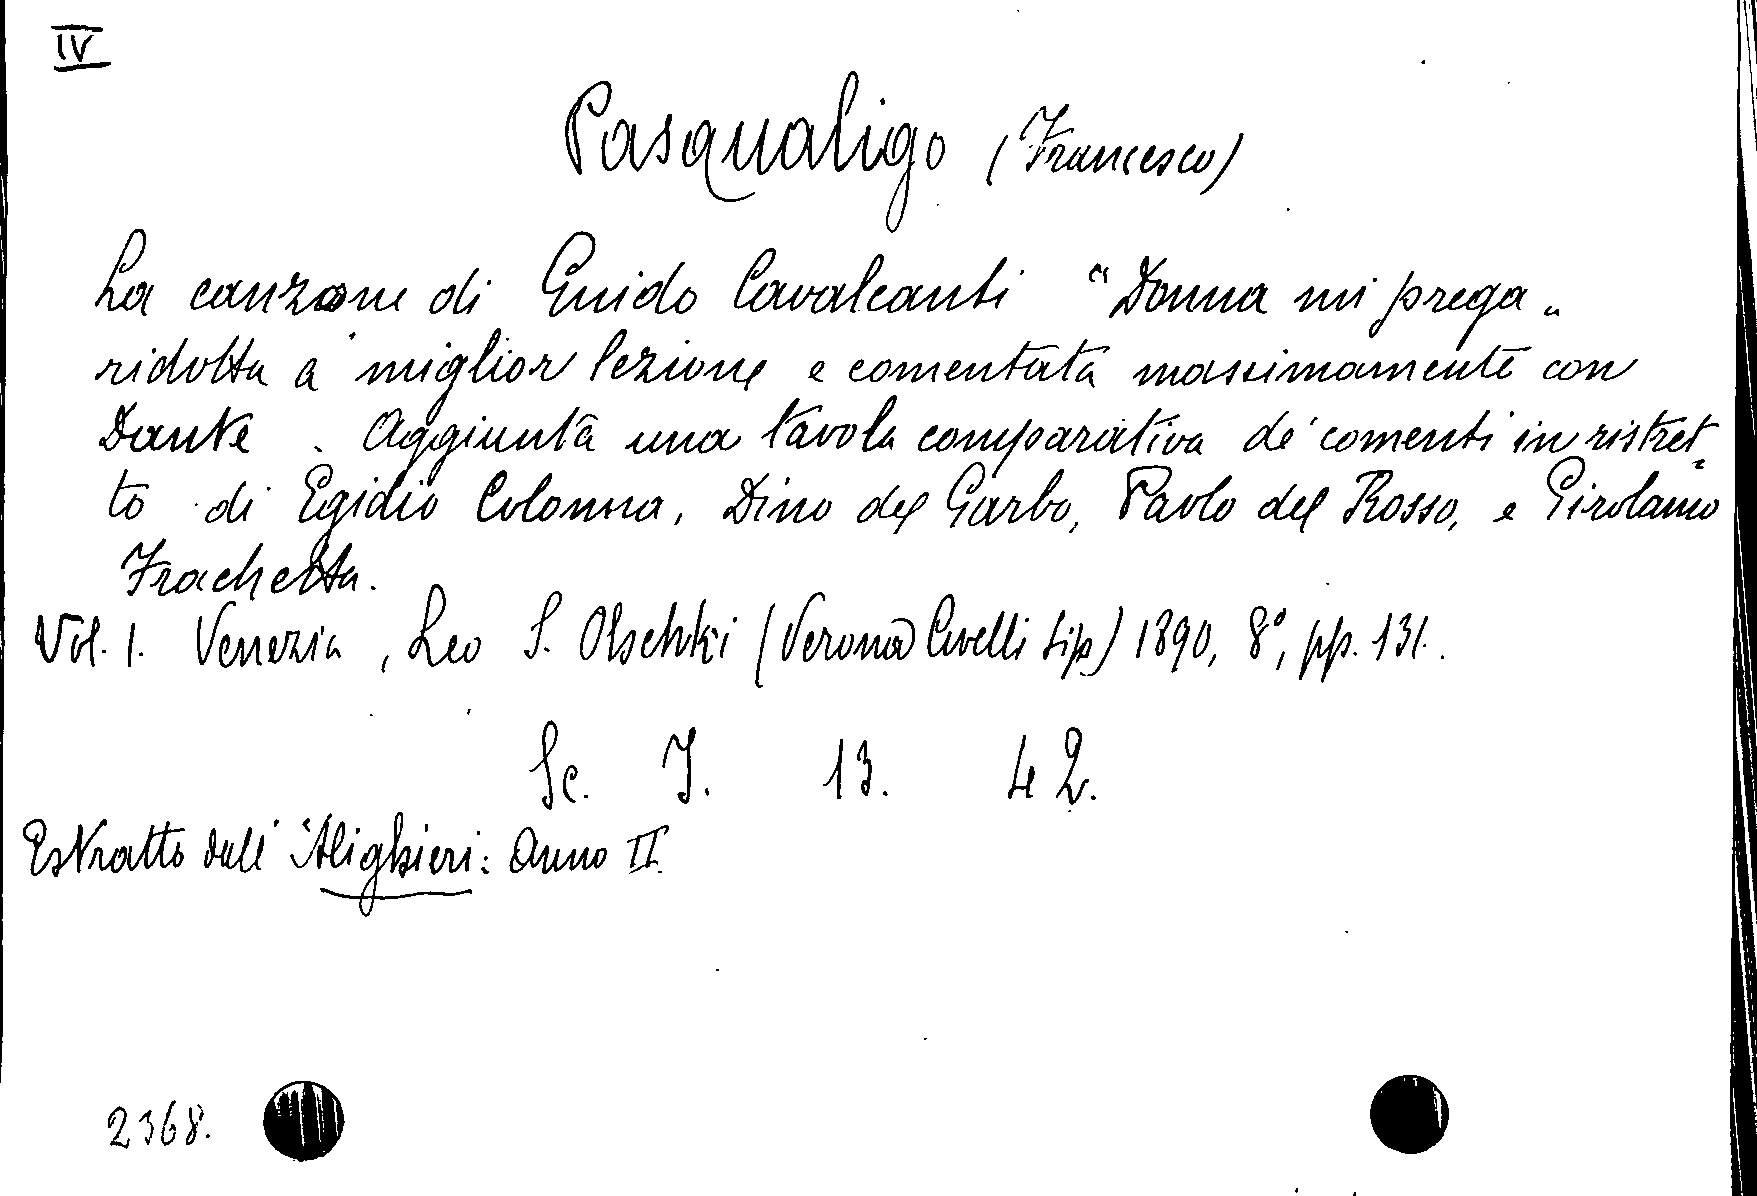 IV
Pasqualigo (Francesco)
La canzone di Guido Cavalcanti "Donna mi prega„
ridotta a miglior lezione e comentata massimamente con
Dante. Aggiunta una tavola comparativa de' comenti in ristret-
to di Egidio Colonna, Dino del Garbo, Paolo del Rosso, e Girolamo
Frachetta.
Vol. 1. Venezia, Leo S. Olschki (Verona Civelli tip) 1890, 8°, pp. 131.
Sc. I. 13. 42.
Estratto dall' Alighieri: Anno II.
2368.